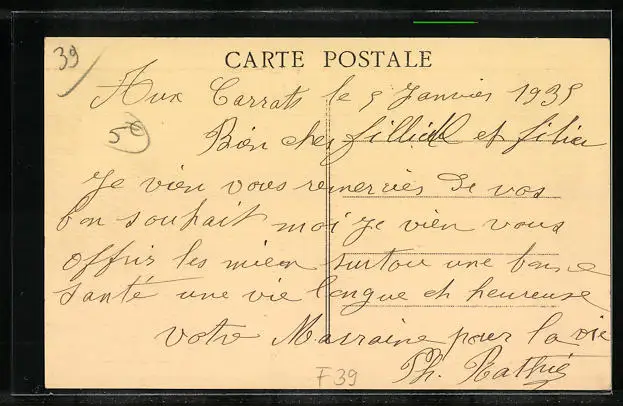 39
CARTE POSTALE
Aux Carrats le 5 Janvier 1935
50
Bien cher filliel et filiel
je vien vous remerciés de vos
bon souhait moi je vien vous
offrir les mien surtou une bone
santé une vie longue et heureuse
votre Marraine pour la vie
Ph. Rathié
F39